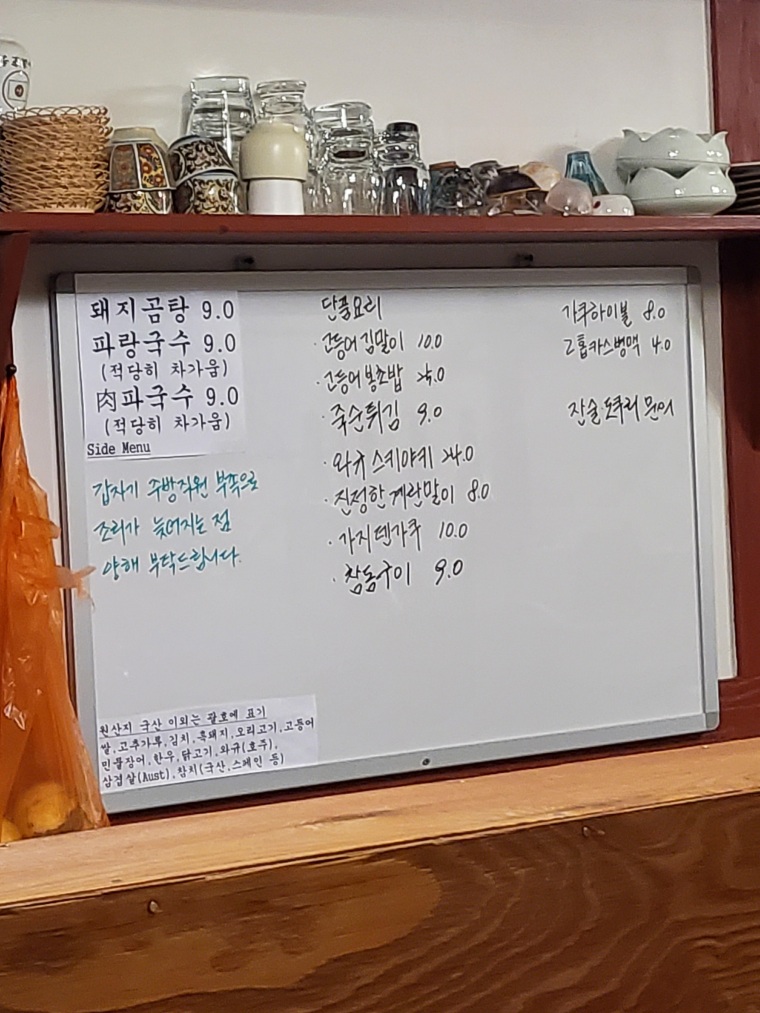 돼지곰탕 9.0
파랑국수 9.0
(적당히 차가움)
肉파국수 9.0
(적당히 차가움)
Side Menu
갑자기 주방직원 부족으로
조리가 늦어지는 점
양해 부탁드립니다.
원산지 국산 이외는 괄호에 표기
쌀,고추가루,김치,흑돼지,오리고기,고등어
민물장어,한우,닭고기,와규(호주),
삼겹살(Aust),참치(국산,스페인 등)
단품요리
·고등어김말이 10.0
·고등어봉초밥 25.0
·죽순튀김 9.0
·와규스키야키 24.0
·진정한계란말이 8.0
·가지덴가쿠 10.0
·참동구이 9.0
가쿠하이볼 8.0
고흡카스병맥 4.0
잔술도쿠리 문의